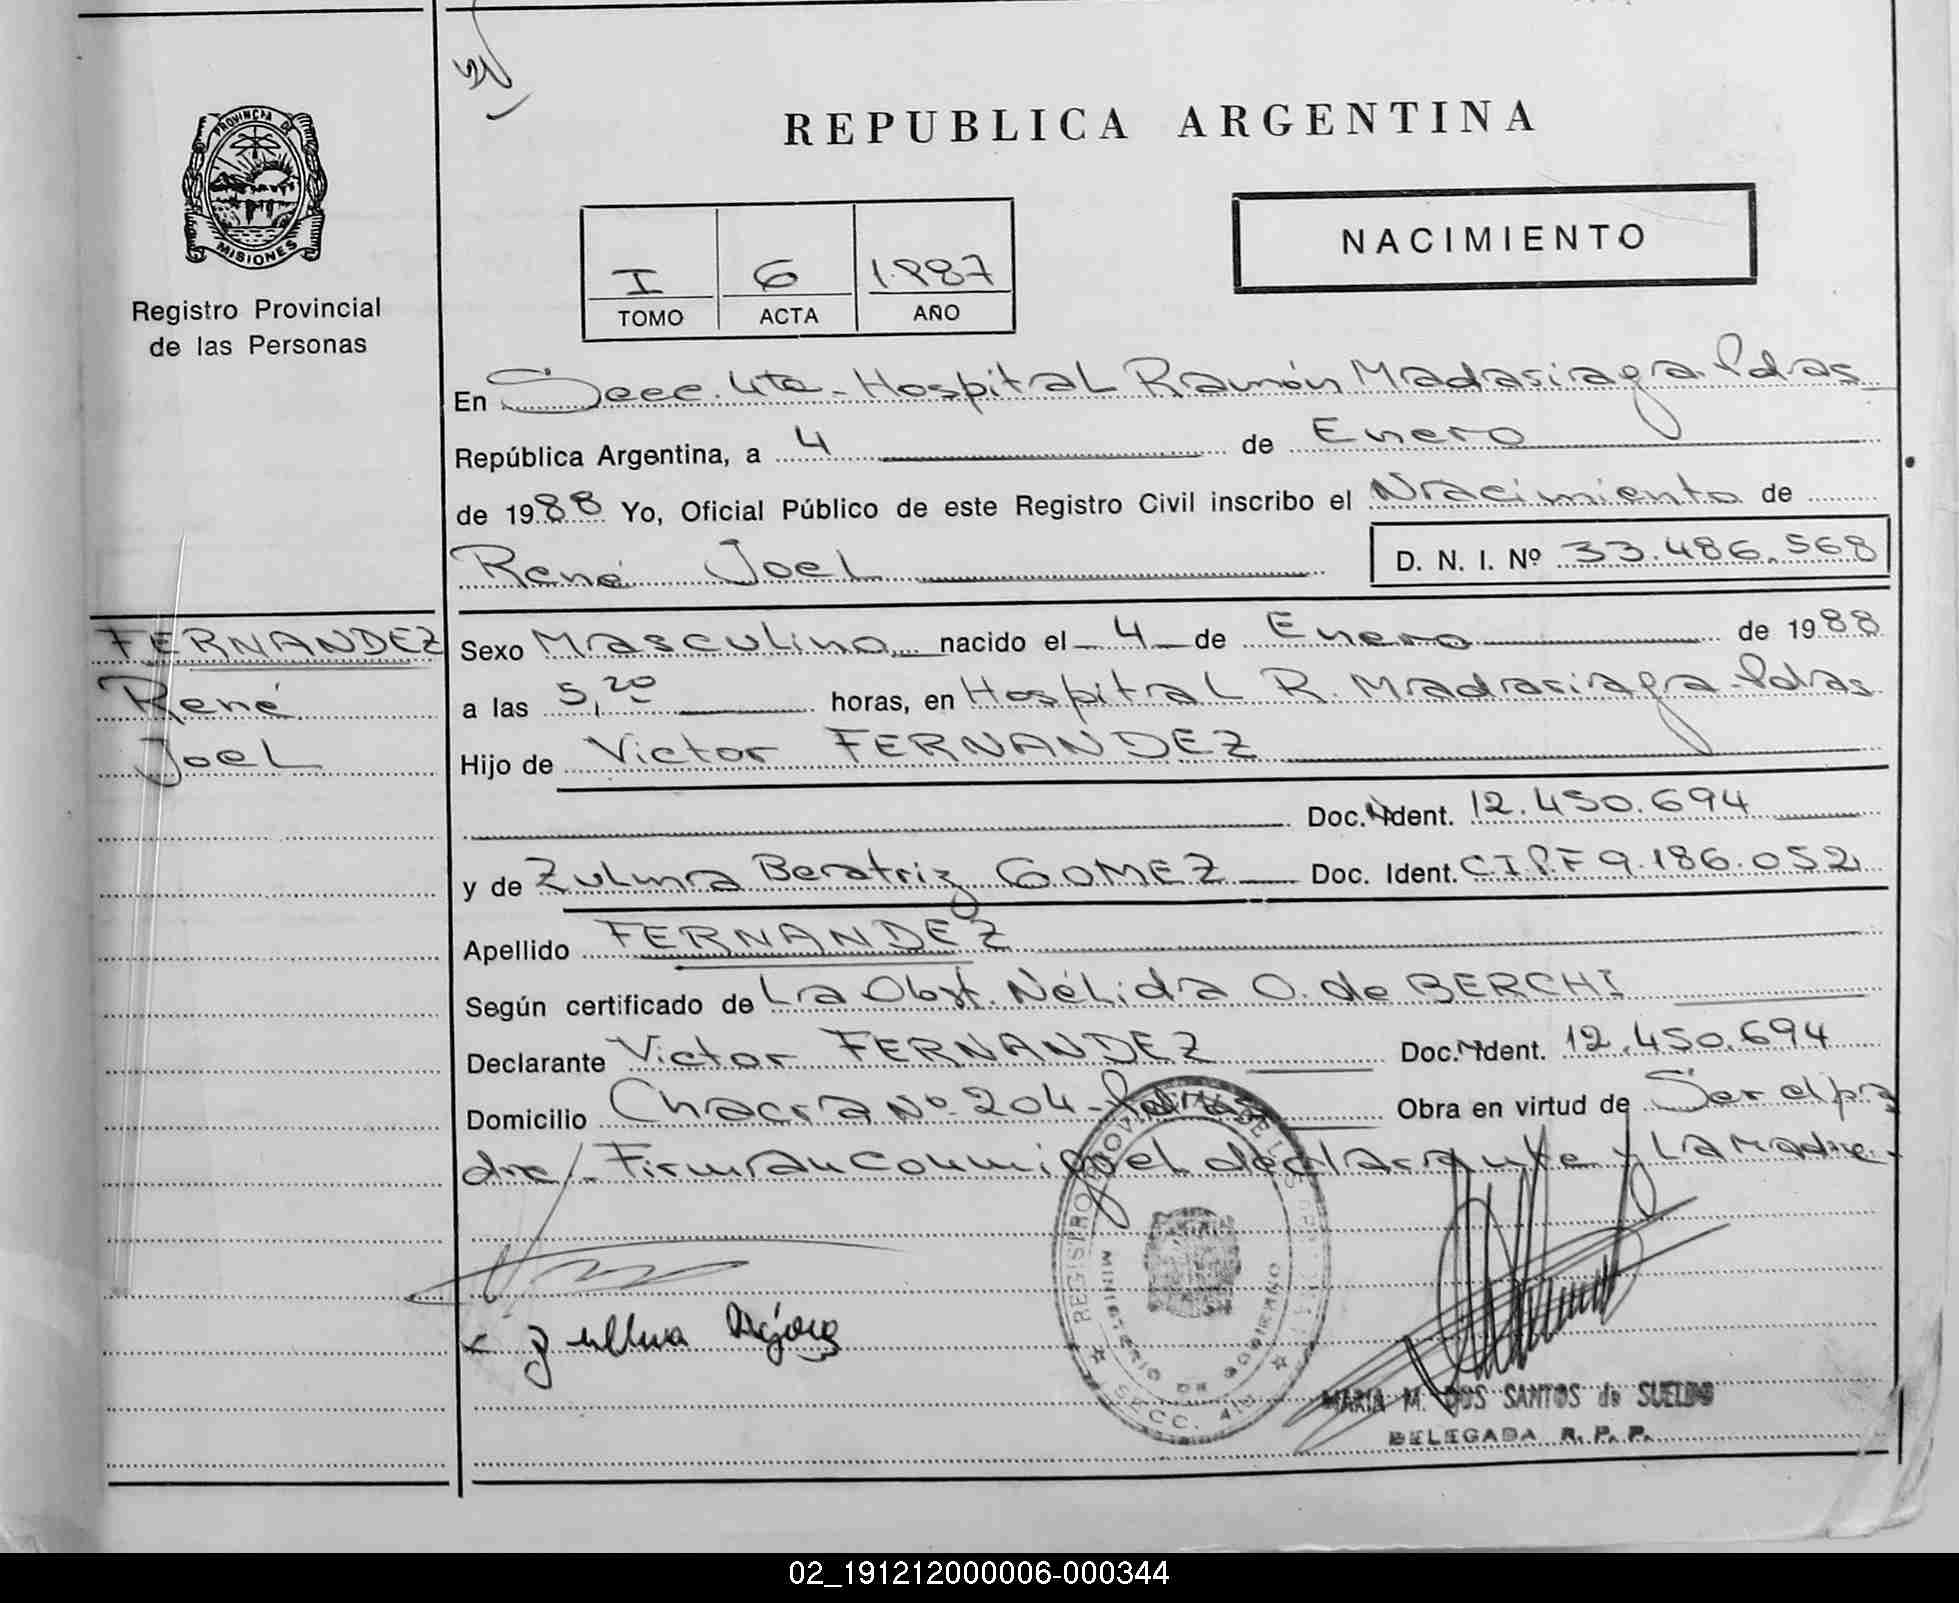 REPUBLICA ARGENTINA
PROVINCIA DE
MISIONES
Registro Provincial
de las Personas
NACIMIENTO
I 6 1.987
TOMO ACTA AÑO
En Secc. 4ta - Hospital Ramón Madariaga. Pdas
República Argentina, a 4 de Enero
de 1988 Yo, Oficial Público de este Registro Civil inscribo el Nacimiento de
René Joel D. N. I. Nº 33.486.568
FERNANDEZ
René
Joel
Sexo Masculino nacido el 4 de Enero de 1988
a las 5,20 horas, en Hospital R. Madariaga. Pdas
Hijo de Victor FERNANDEZ
Doc. Ident. 12.450.694
y de Zulma Beatriz GOMEZ Doc. Ident. C I P.F 9.186.052
Apellido FERNANDEZ
Según certificado de La Obst. Nélida O. de BERCHI
Declarante Victor FERNANDEZ Doc. Ident. 12.450.694
Domicilio Chacra Nº 204 - Pdas Obra en virtud de Ser el pa
dre/- Firman conmigo el declarante y La Madre.-
REGISTRO PROVINCIAL DE LAS
MINISTERIO DE GOBIERNO
SECC. 4ta
MARIA M. DOS SANTOS de SUELDO
DELEGADA R. P. P.
02_191212000006-000344